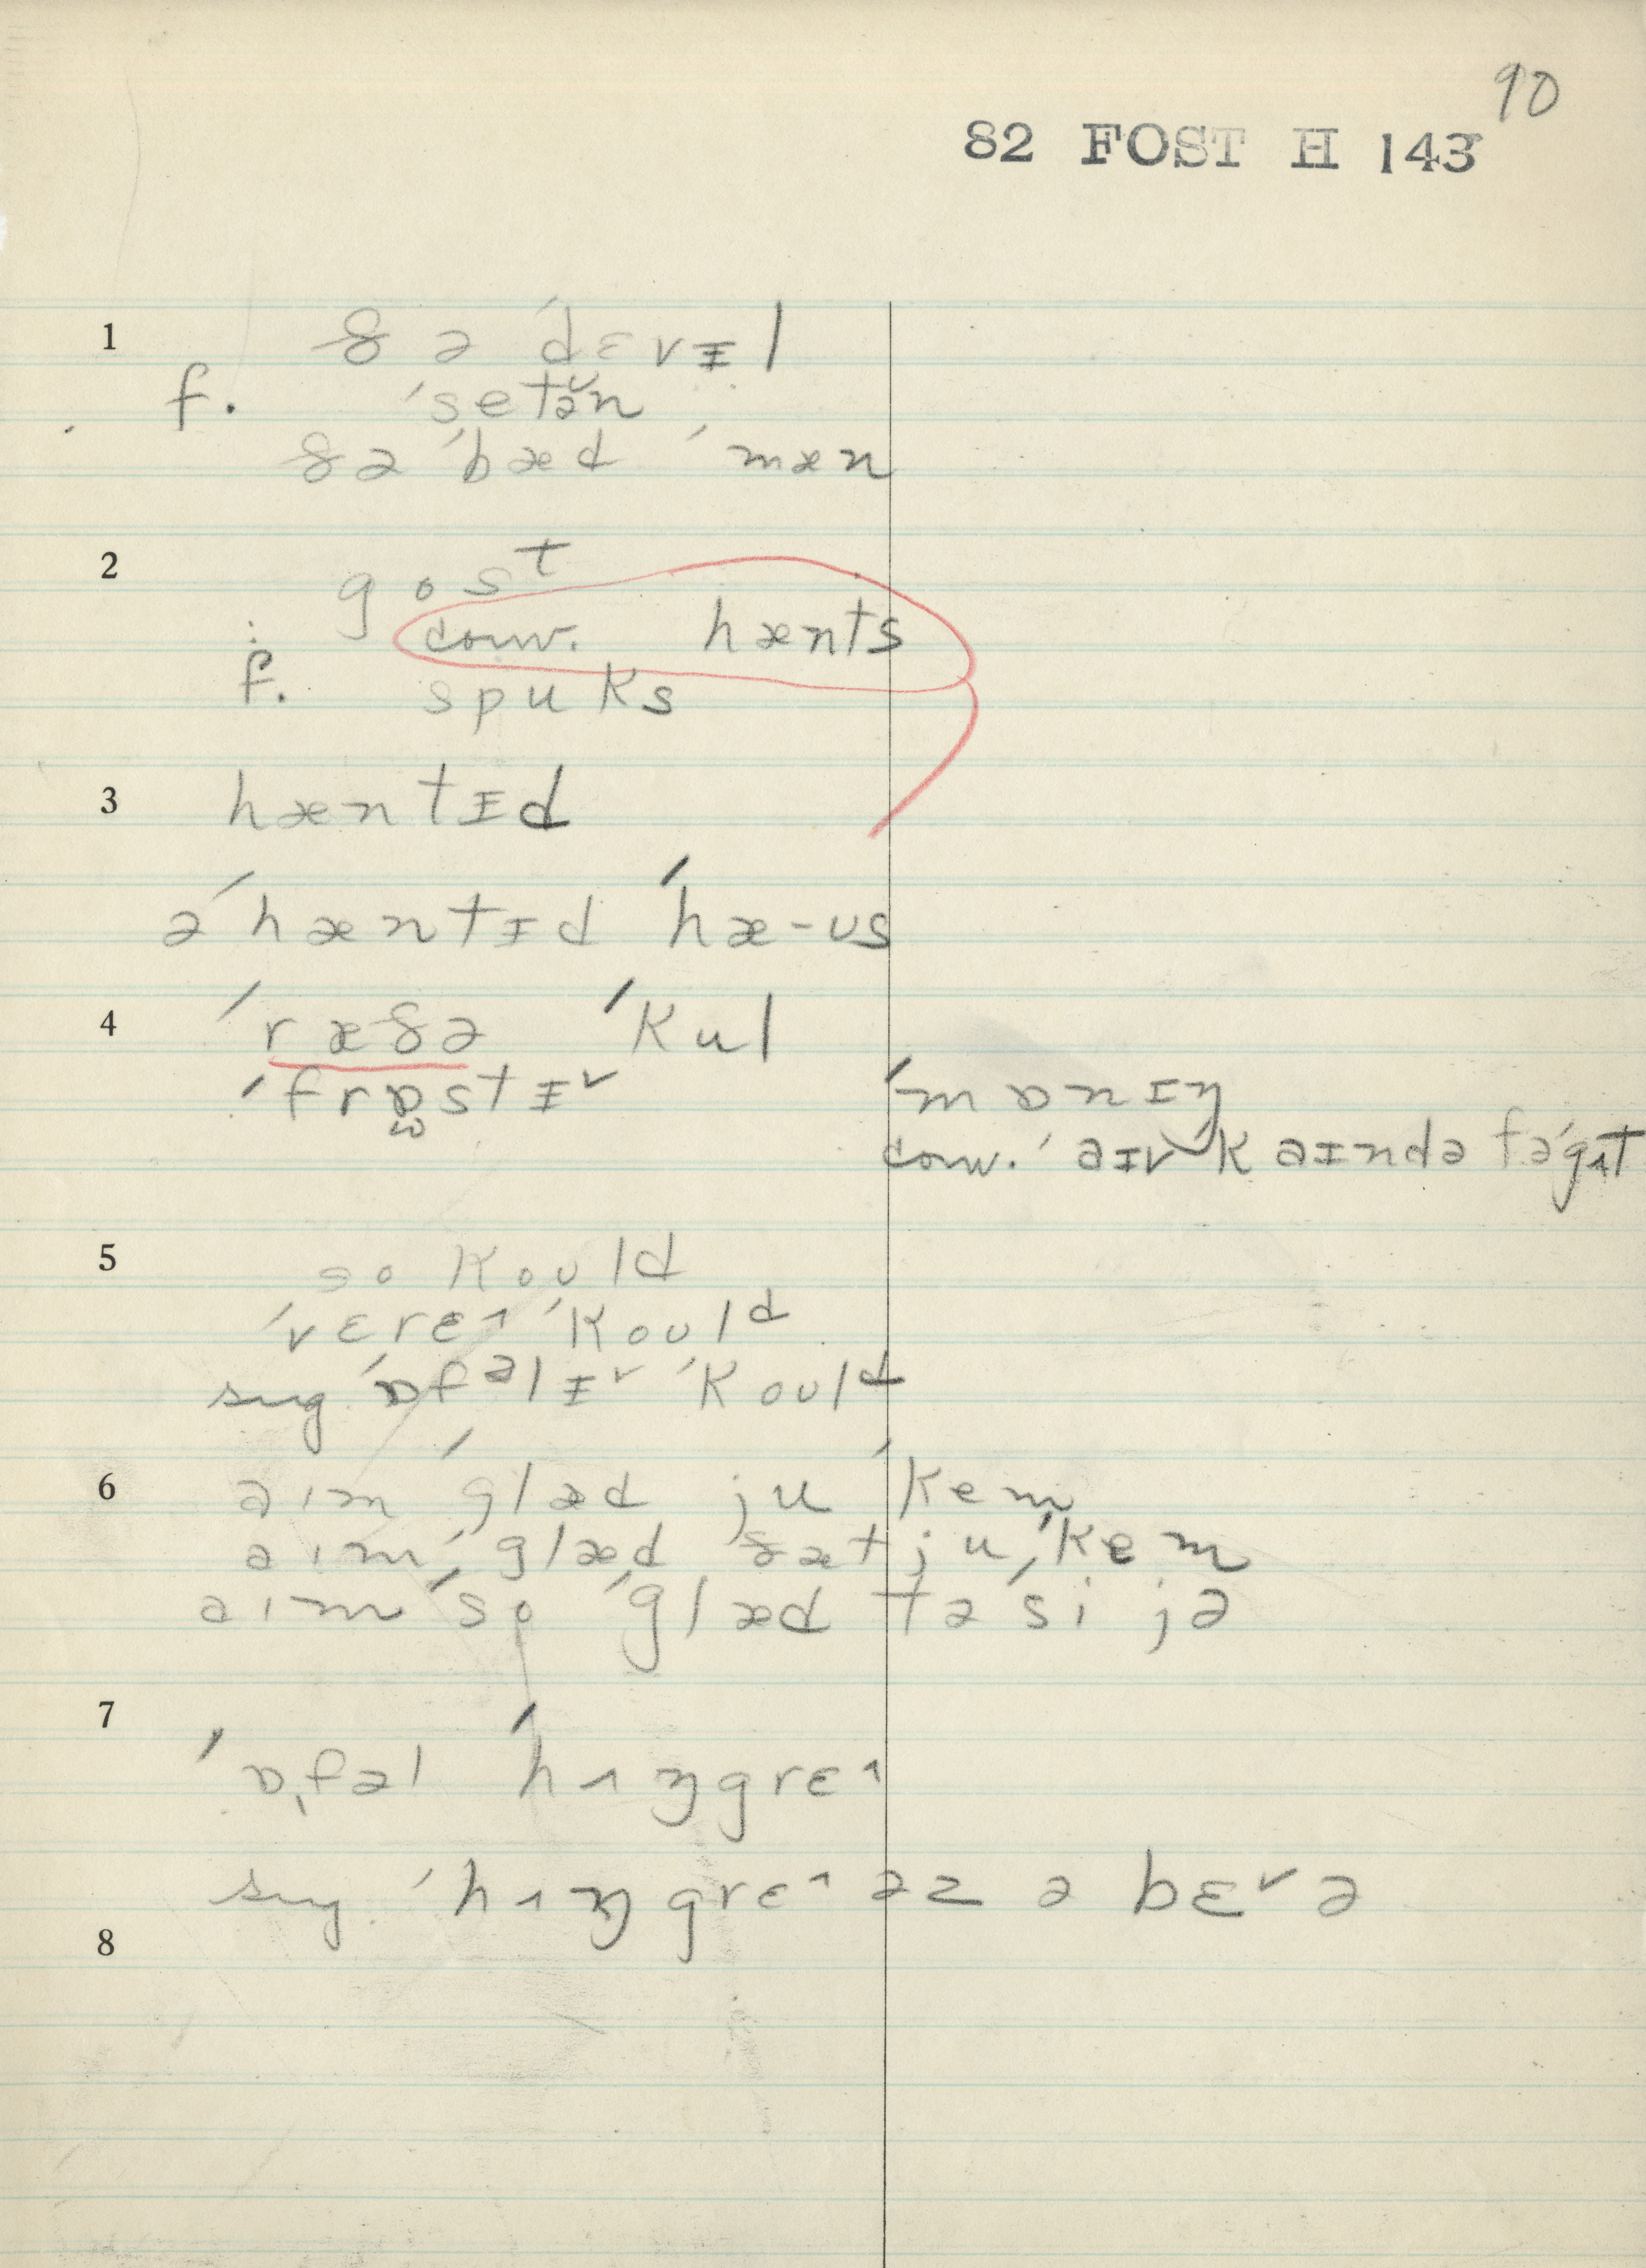 90
82 FOST H 143
1 ðə ˈdɛvɪl
f. ˈsetə̆n
ðə ˈbæd ˈmæn
2 gosᵗ
conv. hænts
f. spuks
3 hæntɪd
ə ˈhæntɪd ˈhæ-ʊs
4 ˈræðə ˈkul
ˈfrɒstɪ˅ ˈmɒnɪŋ
conv. ˈaɪ˅ ˈkaɪndə fəˈgɪt
5 so koʊld
ˈvɛrɛ˄ ˈkoʊlᵈ
sug ˈɒfᵊlɪ˅ ˈkoʊlᵈ
6 aɪm ˈglæd ju ˈkem
aɪm ˈglæd ðæt ju ˈkem
aɪm ˈso ˈglæd tə ˈsi jə
7
ˈɒfəl ˈhʌŋgrɛ˄
sug. ˈhʌŋgrɛ˄ əz ə bɛ˅ə
8